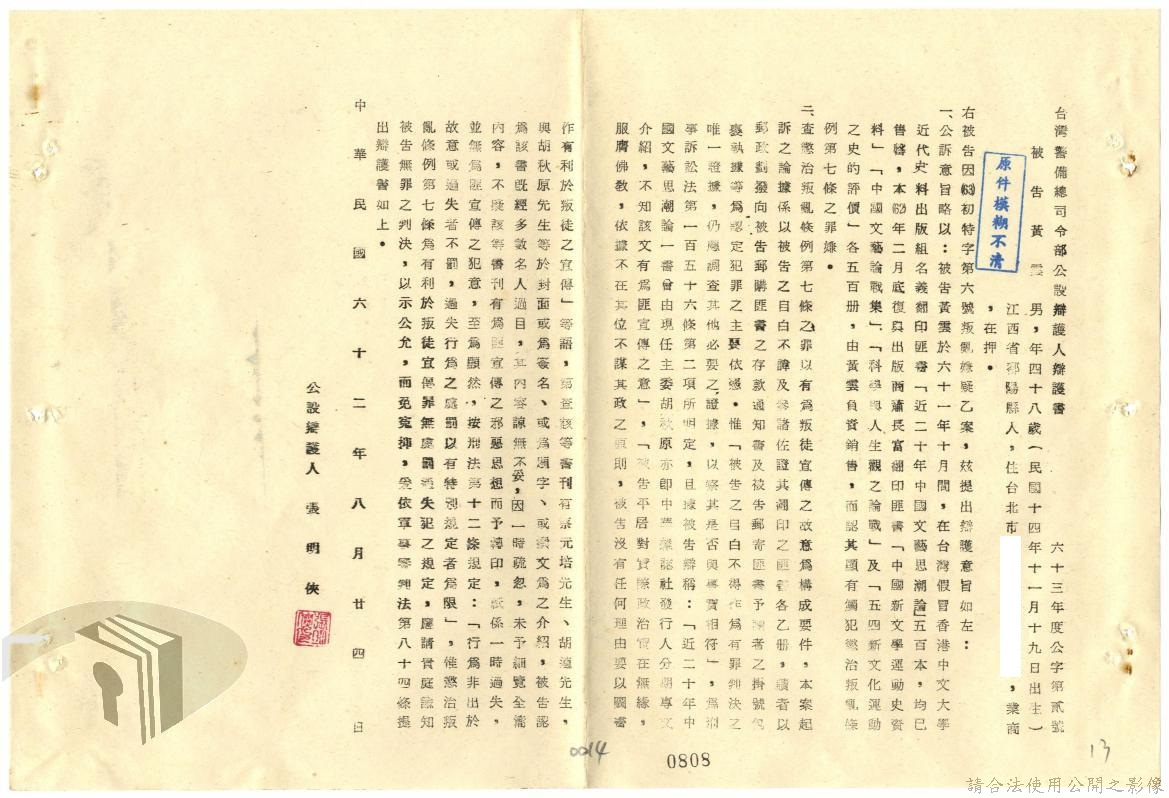 台灣警備總司令部公設辯護人辯護書
六十三年度公字第貳號
被告黃雲 男,年四十八歲(民國十四年十一月十九日出生)
江西省鄱陽縣人,住台北市 ,業商
,在押。
原件模糊不清
右被告因(63)初特字第六號叛亂嫌疑乙案,玆提出辯護意旨如左:
一、公訴意旨略以:被告黃雲於六十一年十月間,在台灣假冒香港中文大學
近代史料出版組名義翻印匪書「近二十年中國文藝思潮論」五百本,均已
售罄,本(62)年二月底復與出版商蕭長富翻印匪書「中國新文學運動史資
料」「中國文藝論戰集」「科學與人生觀之論戰」及「五四新文化運動
之史的評價」各五百册,由黃雲負責銷售,而認其顯有觸犯懲治叛亂條
例第七條之罪嫌。
二、查懲治叛亂條例第七條之罪以有為叛徒宣傳之故意為構成要件,本案起
訴之論據係以被告之自白不諱及參諸佐證其翻印之匪書各乙册,讀者以
郵政劃撥向被告郵購匪書之存款通知書及被告郵寄匪書予讀者之掛號包
裹執據等為認定犯罪之主要依憑。惟「被告之自白不得作為有罪判決之
唯一證據,仍應調查其他必要之證據,以察其是否與事實相符」,為刑
事訴訟法第一百五十六條第二項所明定,且據被告辯稱:「近二十年中
國文藝思潮論一書曾由現任主委胡秋原亦即中華雜誌社發行人分期專文
介紹,不知該文有為匪宣傳之意」,「被告平居對實際政治實在無緣,
服膺佛教,依據不在其位不謀其政之原則,被告沒有任何理由要以關書
作有利於叛徒之宣傳」等語,第查該等書刊有蔡元培先生、胡適先生,
與胡秋原先生等於封面或為簽名、或為題字、或案文為之介紹,被告認
為該書既經多數名人過目,其內容諒無不妥,因一時疏忽,未予細覽全
內容,不疑該等書刊有為匪宣傳之邪惡思想而予轉印,祇係一時過失,
並無為匪宣傳之犯意,至為顯然,按刑法第十二條規定:「行為非出於
故意或過失者不罰,過失行為之處罰以有特別規定者為限」,惟懲治叛
亂條例第七條為有利於叛徒宣傳罪無處罰過失犯之規定,應請貴庭諭知
被告無罪之判決,以示公允,而免冤抑,爰依軍事審判法第八十四條提
出辯護書如上。
中華民國六十二年八月廿四日
公設辯護人 張明俠
0014
0808
13
請合法使用公開之影像